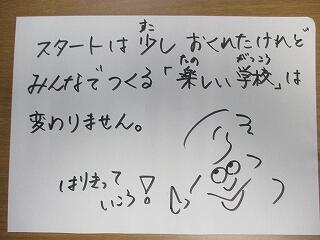 スタートは少しおくれたけれど
みんなでつくる「楽しい学校」は
変わりません。
はりきって
いこう!